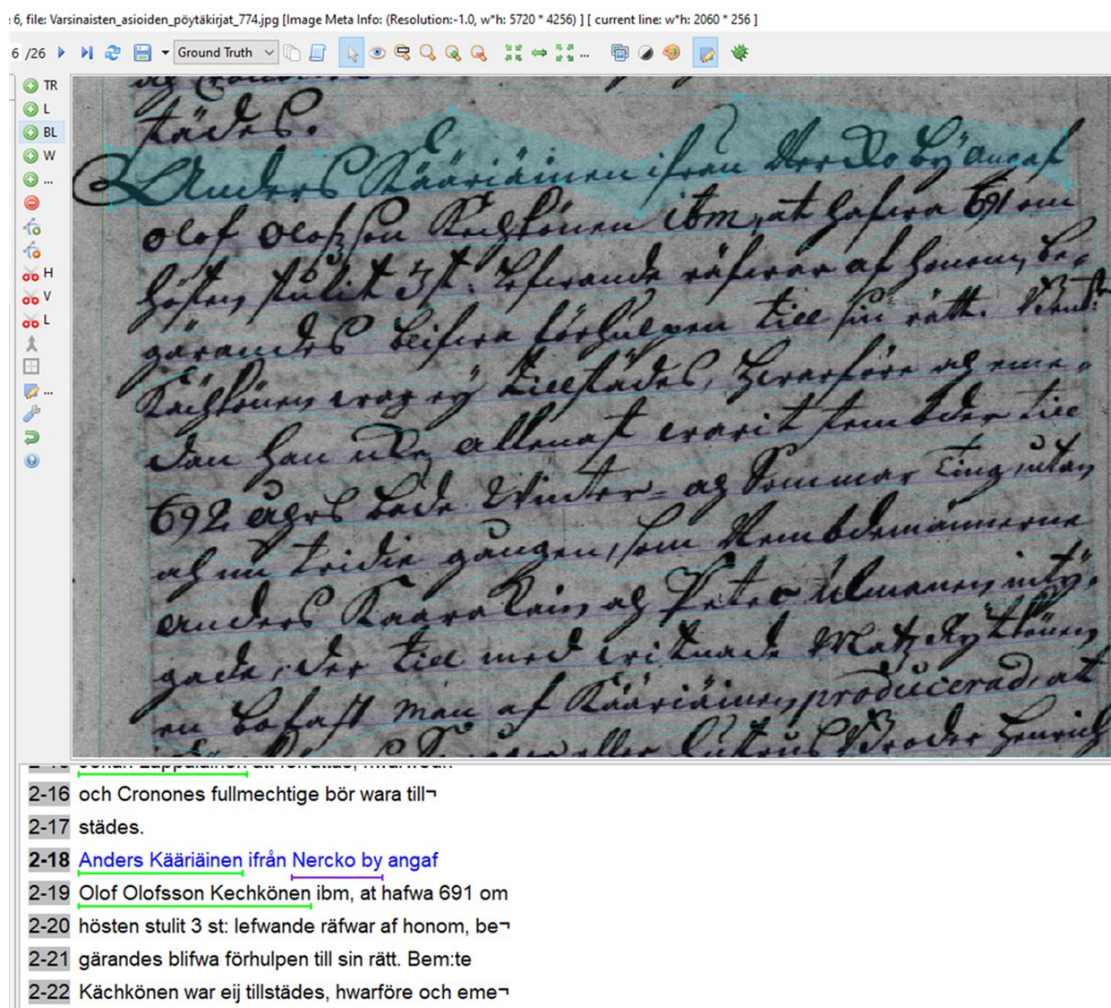 6, file: Varsinaisten_asioiden_pöytäkirjat_774.jpg [Image Meta Info: (Resolution:-1.0, w*h: 5720 * 4256) ] [ current line: w*h: 2060 * 256 ]
6 /26 Ground Truth
TR
L
BL
W
...
H
V
L
...
städes.
Anders Kääriäinen ifrån Nercko by angaf
Olof Olofsson Kechkönen ibm, at hafwa 691 om
hösten stulit 3 st: lefwande räfwar af honom, be-
gärandes blifwa förhulpen till sin rätt. Bem:te
Kächkönen war eij tillstädes, hwarföre och eme-
dan han allenast warit stembder till
692 åhrs både Winter- och Sommar Ting, utan
och nu tridie gången, som Nembdemännerne
Anders Kaarakain och Peter Ulmanen inty-
gade, der till med witnade Matz
en bofast man af Kääriäinen producerad, at
eller Broder Henrich
2-16 och Cronones fullmechtige bör wara till¬
2-17 städes.
2-18 Anders Kääriäinen ifrån Nercko by angaf
2-19 Olof Olofsson Kechkönen ibm, at hafwa 691 om
2-20 hösten stulit 3 st: lefwande räfwar af honom, be¬
2-21 gärandes blifwa förhulpen till sin rätt. Bem:te
2-22 Kächkönen war eij tillstädes, hwarföre och eme¬